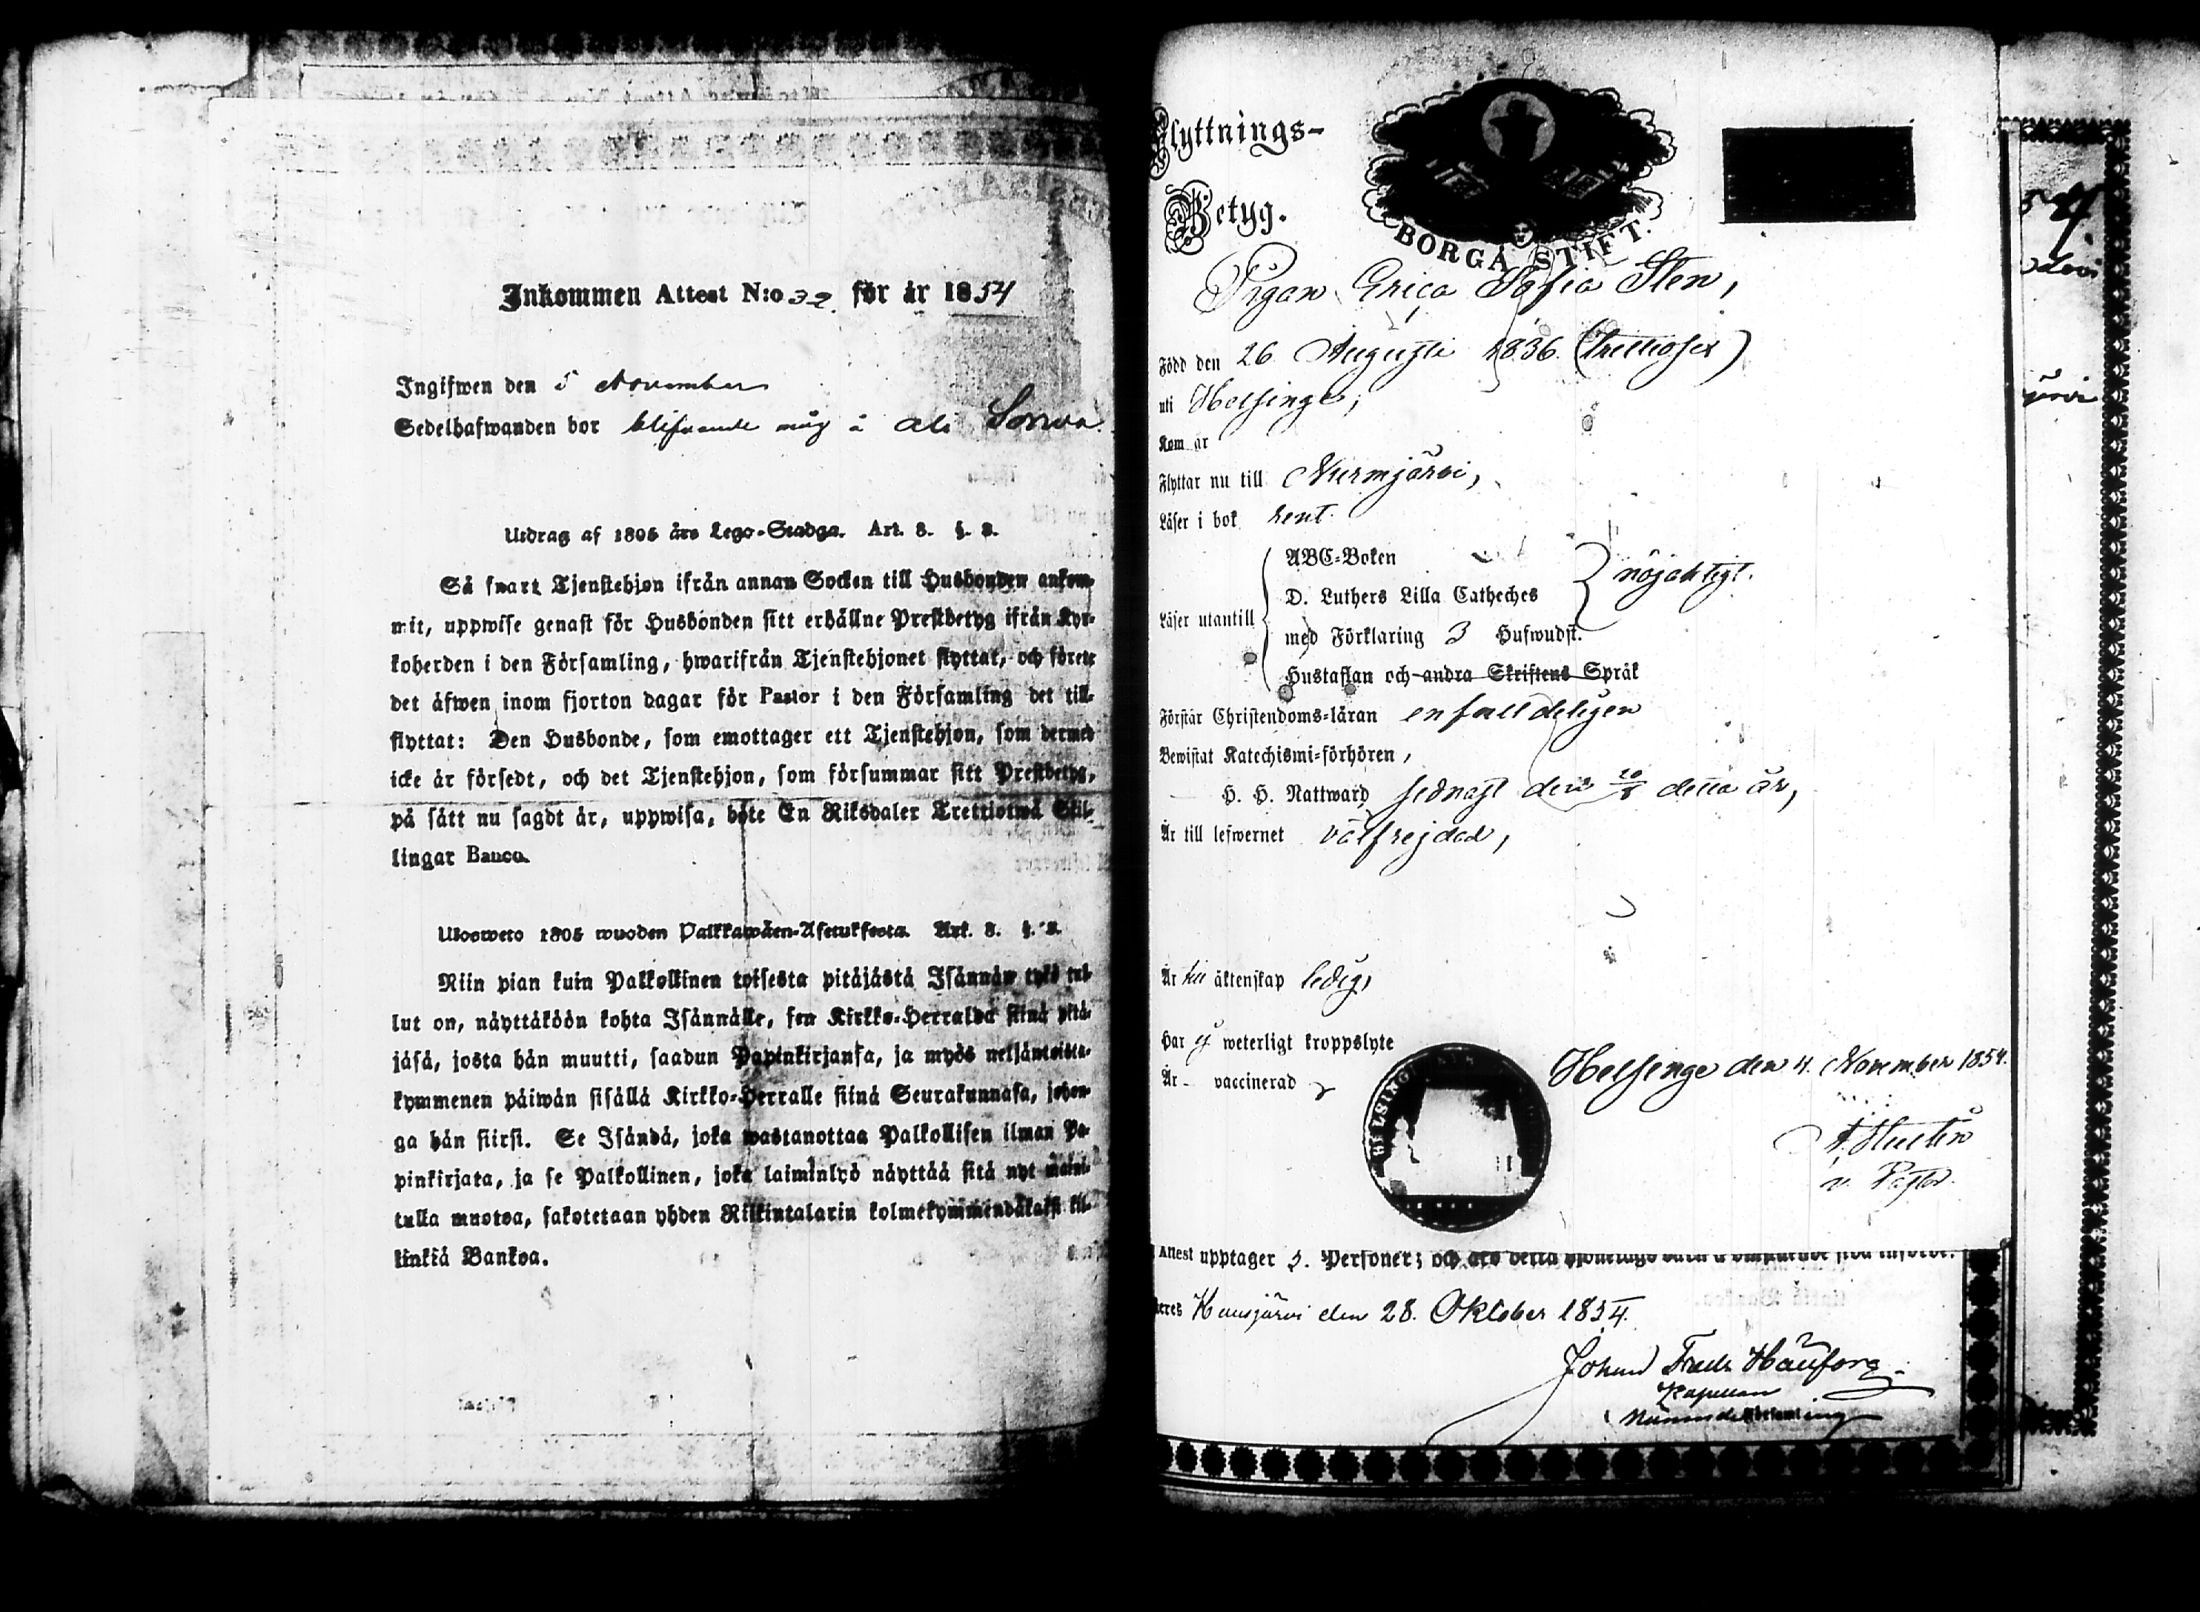 Inkommen Attest N:o 32 för år 1854
Ingifwen den 5 November
Sedelhafwanden bor blifvande måg å Ali
Utdrag af 1805 års Lego-Stadga. Art. 8. §. 2.
Så snart Tjenstehjon ifrån annan Socken till Husbonden ankom-
mit, uppwise genast för Husbonden sitt erhållne Prestbetyg ifrån Kyr-
koherden i den Församling, hwarifrån Tjenstehjonet flyttat, och förete
det äfwen inom fjorton dagar för Pastor i den Församling det till-
flyttat: Den Husbonde, som emottager ett Tjenstehjon, som dermed
icke är försedt, och det Tjenstehjon, som försummar sitt Prestbetyg,
på sätt nu sagdt är, uppwisa, böte En Riksdaler Trettiotwå Skil-
lingar Banco.
Ulosweto 1805 wuoden Palkkawäen-Asetuksesta. Art. 8. §. 2.
Niin pian kuin Palkollinen toisesta pitäjästä Isännän tykö tul-
lut on, näyttäköön kohta Isännälle, sen Kirkko-Herralda siinä pitä-
jäsä, josta hän muutti, saadun Papinkirjansa, ja myös neljäntoista-
kymmenen päiwän sisällä Kirkko-Herralle siinä Seurakunnasa, johon-
ga hän siirsi. Se Isändä, joka wastanottaa Palkollisen ilman Pa-
pinkirjata, ja se Palkollinen, joka laiminlyö näyttää sitä nyt maini-
tulla muotoa, sakotetaan yhden Riikintalarin kolmekymmendäkaksi kil-
linkiä Bankoa.
Flyttnings-
Betyg.
BORGÅ STIFT.
Pigan Erica Sofia Sten,
Född den 26 Augusti 1836 (trettiosex)
uti Helsinge,
Kom år
Flyttar nu till Nurmjärvi,
Läser i bok rent.
Läser utantill
ABC-Boken
D. Luthers Lilla Catheches
med Förklaring 3 Hufwudst.
nöjaktigt.
Hustaflan och andra Skriftens Språk
Förstår Christendoms-läran enfalldeligen
Bewistat Katechismi-förhören,
H. H. Nattward sednast den detta år,
Är till lefwernet välfrejdad,
Är till äktenskap ledig,
Har ej weterligt kroppslyte
Är vaccinerad
Helsinge den 4. November 1854.
v. Pastor.
Attest upptager 3. Personer; och
Hausjärvi den 28. Oktober 1854.
Kapellan